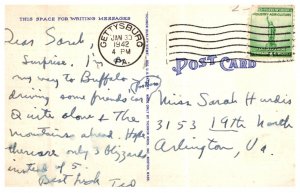 THIS SPACE FOR WRITING MESSAGES
Dear Sarah,
Surprise. I'm
my way to Buffalo
driving some friends car
Quite alone & The
mountains ahead. Hope
there are only 3 blizzards
instead of 5.
Best luck Ted
GETTYSBURG
JAN 30
1942
PA.
POST CARD
Miss Sarah
3153 19th North
Arlington, Va.